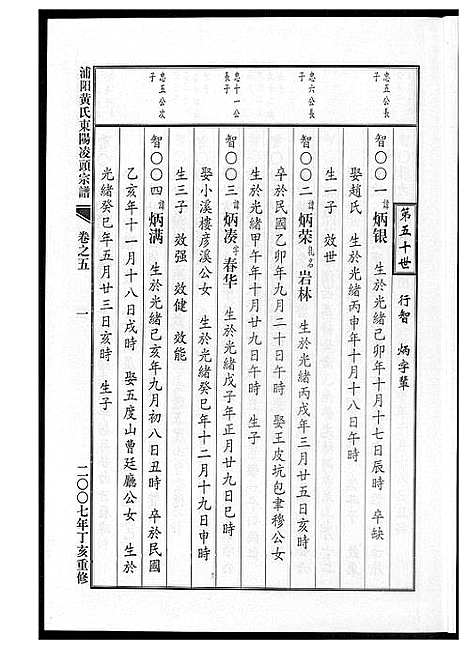 第五十世 行智 炳字輩
忠五公長子
智〇〇一 諱 炳银 生於光緒己卯年十月十七日辰時 卒缺
娶趙氏 生於光緒丙申年十月十八日午時
生一子 效世
忠六公長子
智〇〇二 諱 炳荣 乳名 岩林 生於光緒丙戌年三月廿五日亥時
卒於民國乙卯年九月二十日午時 娶王皮坑包聿穆公女
生於光緒甲午年十月廿九日午時 生子
忠十一公長子
智〇〇三 諱 炳凑 字 春华 生於光緒戊子年正月廿九日巳時
娶小溪樓彦溪公女 生於光緒癸巳年十二月十九日申時
生三子 效强 效健 效能
忠五公次子
智〇〇四 諱 炳满 生於光緒己亥年九月初八日丑時 卒於民國
乙亥年十一月十八日戌時 娶五度山曹廷廳公女 生於
光緒癸巳年五月廿三日亥時 生子
浦阳黄氏東陽凌頭宗譜 卷之五 一 二〇〇七年丁亥重修